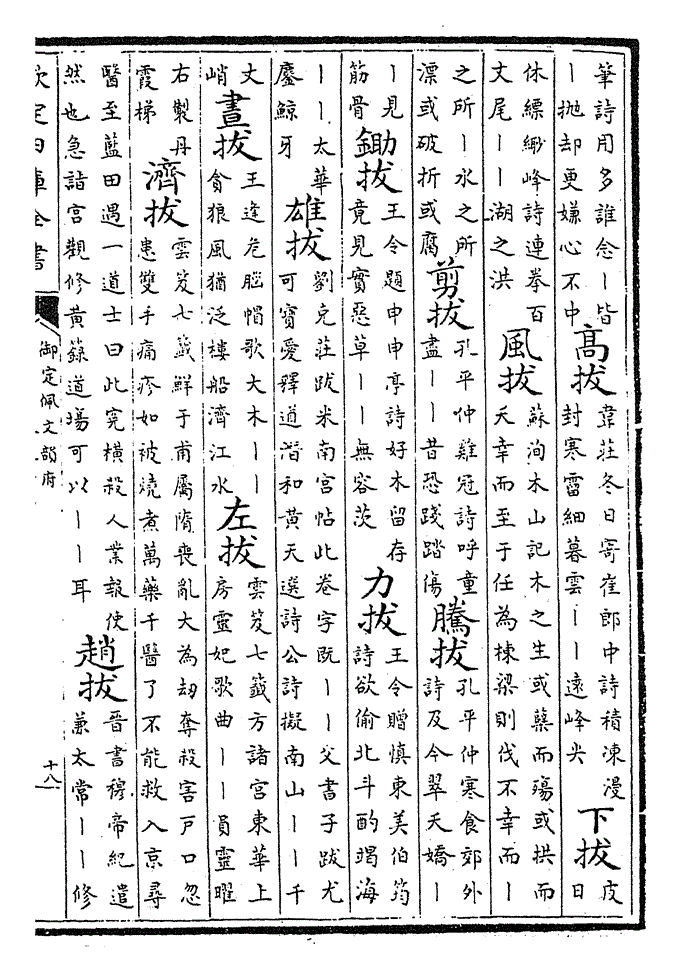 筆詩用多誰念丨皆
丨抛却更嫌心不中
高拔
韋莊冬日寄崔郎中詩積凍漫
封寒雷細暮雲丨丨遠峰尖
下拔
皮
日
休縹緲峰詩連拳百
丈尾丨丨湖之洪
風拔
蘇洵木山記木之生或蘖而殤或拱而
夭幸而至于任為棟梁則伐不幸而丨
之所丨水之所
漂或破折或腐
剪拔
孔平仲雞冠詩呼童
盡丨丨昔恐踐踏傷
騰拔
孔平仲寒食郊外
詩及今翠天嬌丨
丨見
筋骨
鋤拔
王令題申申亭詩好木留存
竟見實惡草丨丨無容茨
力拔
王令贈慎東美伯筠
詩欲偷北斗酌竭海
丨丨太華
鏖鯨牙
雄拔
劉克莊跋米南宫帖此卷字既丨丨父書子跋尤
可寶愛釋道潛和黄天選詩公詩擬南山丨丨千
丈
峭
晝拔
王逢危腦帽歌大木丨丨
貪狼風猶泛樓船濟江水
左拔
雲笈七籤方諸宮東華上
房靈妃歌曲丨丨員靈曜
右製丹
霞梯
濟拔
雲笈七籤鮮于甫屬隋喪亂大為刼奪殺害戸口忽
患雙手痛疼如被燒煮萬藥千醫了不能救入京尋
醫至藍田遇一道士曰此寃横殺人業報使
然也急詣宫觀修黄籙道場可以丨丨耳
趙拔
晉書穆帝紀遣
兼太常丨丨修
欽定四庫全書
御定佩文韻府
十八